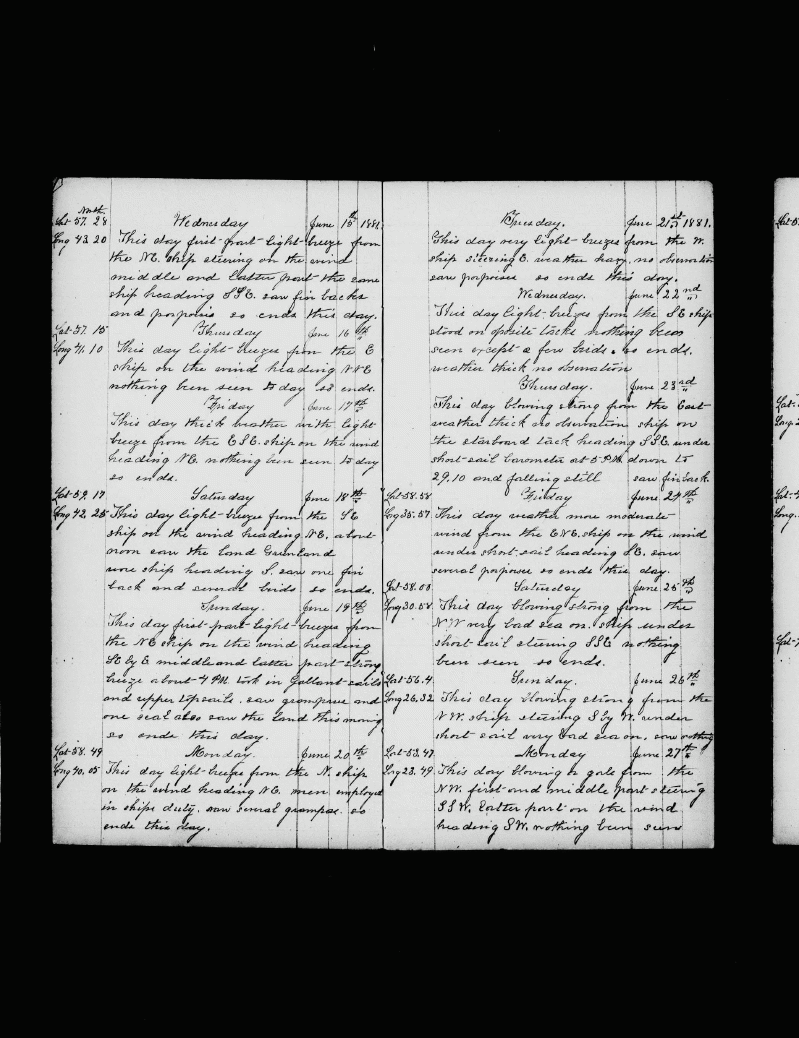 North
Lat 57. 28 Wednesday June 15th 1881.
Long 43 20 This day first part light breeze from
the NE. ship steering on the wind
middle and Latter part the same
ship heading SSE. saw fin backs
and porporis so ends this day.
Lat 57. 15 Thursday June 16 th
Long 41. 10 This day light breezes from the E
ship on the wind heading NNE
nothing ben seen to day so ends.
Friday June 17th
This day thick weather with light
breeze from the ESE. ship on the wind
heading NE nothing ben seen to day
so ends.
Lat 59. 17 Saturday June 18 th
Long 42. 25 This day light breeze from the SE
ship on the wind heading NE. about
noon saw the land Greenland
wore ship heading S. saw one fin
back and several birds so ends.
Sunday. June 19 th
This day first part light breezes from
the NE ship on the wind heading
SE by E middle and Latter part strong
breeze about 4 PM. took in Gallant sails
and upper topsails. saw grampuse and
one seal also saw the land this morning
so ends this day.
Lat 58. 49 Monday. June 20 th
Long 40. 05 This day light breezes from the N. ship
on the wind heading NE. men employed
in ships duty. saw several grampas. so
ends this day.
Tuesday. June 21st 1881.
This day very light breezes from the W.
ship steering E. weather hazy, no observation
saw porpoises so ends this day.
Wednesday. June 22 nd "
This day light breezes from the SE ship
stood on opsite tacks nothing been
seen except a few birds. so ends.
weather thick no observation
Thursday. June 23 rd
This day blowing strong from the East
weather thick no observation ship on
the starboard tack heading SSE. under
short sail barometer at 5 P.M. down to
29.10 and falling still saw fin back.
Lat 58. 58 Friday June 24 th
Long 35. 57 This day weather more moderate
wind from the ENE. ship on the wind
under short sail heading SE. saw
several porpoises so ends this day.
Lat 58. 08 Saturday June 25 th
Long 30. 58 This day blowing strong from the
NW very bad sea on. ship under
short sail steering SSE nothing
ben seen so ends.
Lat 56. 4 Sunday. June 26 th "
Long 26. 32 This day blowing strong from the
NW. ship steering S by W. under
short sail very bad sea on. saw nothing
Lat 53. 47 Monday June 27 th "
Long 23. 49 This day blowing a gale from the
NW. first and middle part steering
SSW. Latter part on the wind
heading SW. nothing ben seen